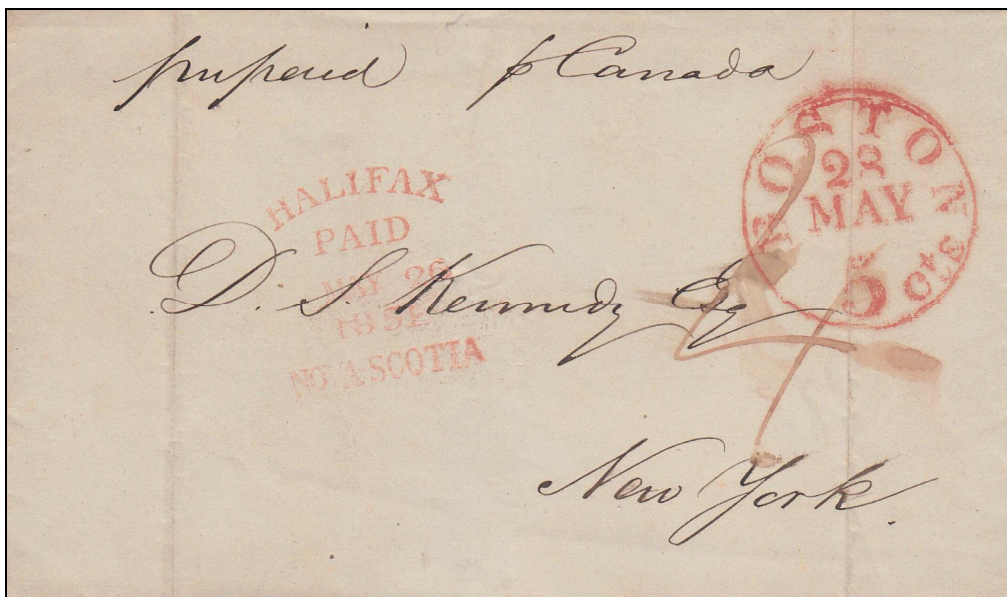 prepaid p Canada
BOSTON
28
MAY
5 cts
HALIFAX
PAID
MAY 26
1851
NOVA SCOTIA
D. S. Kennedy Esq
New York.